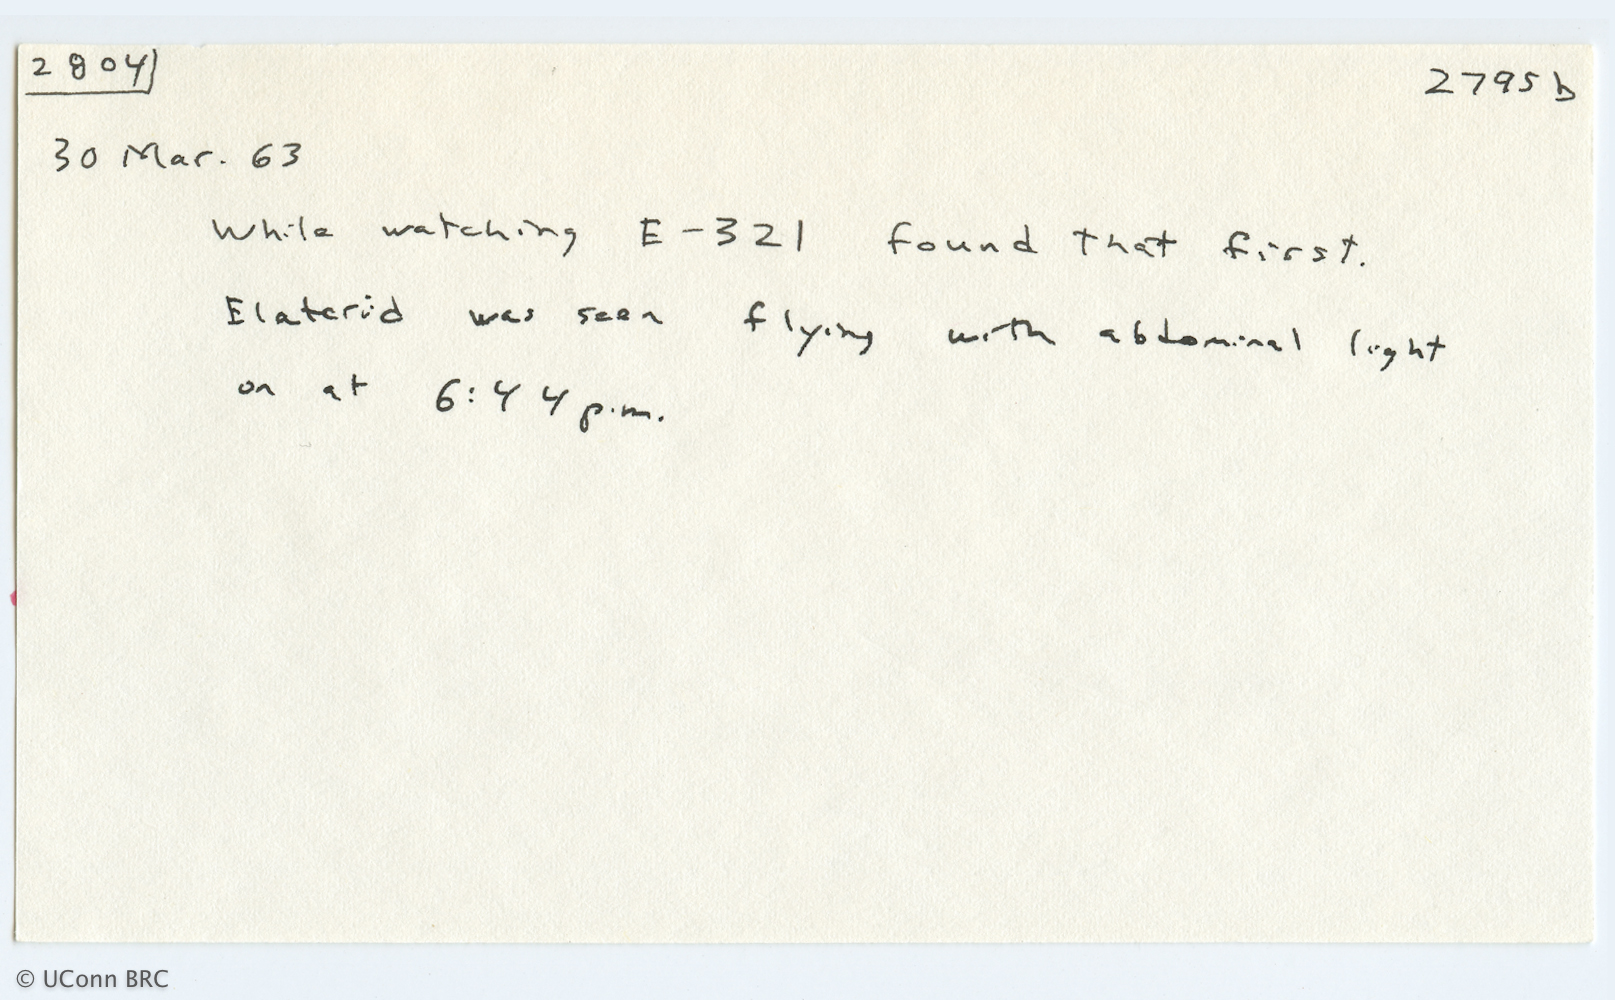 2804
2795b
30 Mar. 63
While watching E-321 found that first.
Elaterid was seen flying with abdominal light
on at 6:44 p.m.
© UConn BRC